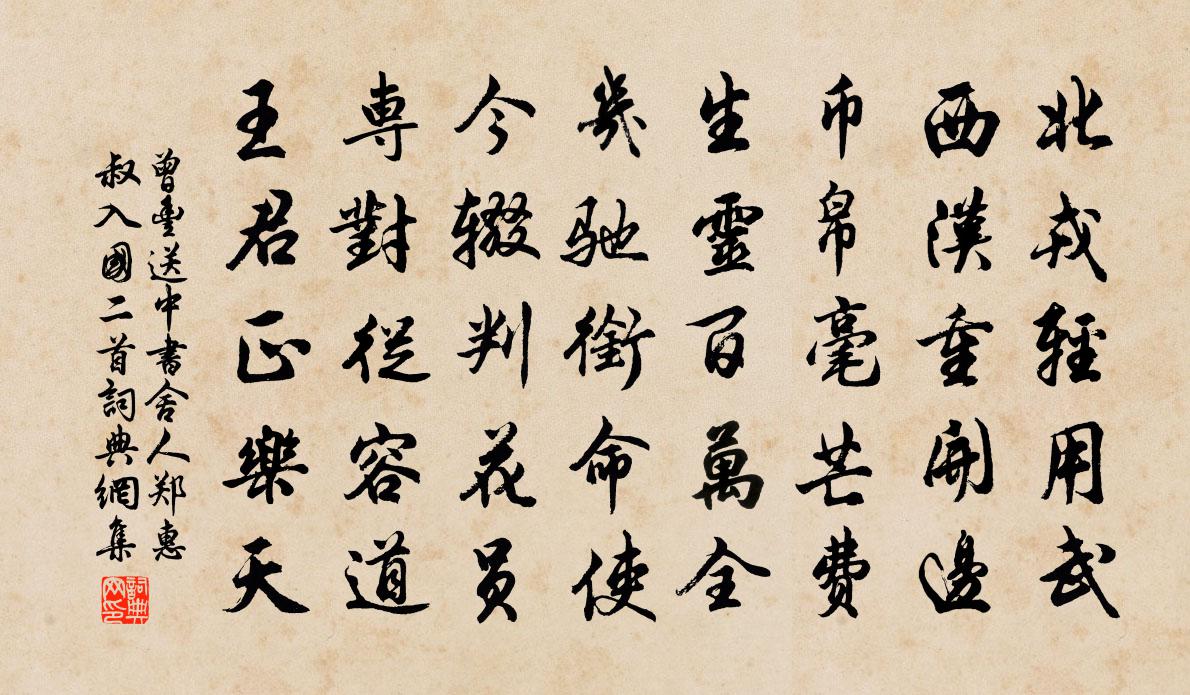 北戎輕用武
西漢重開邊
币帛毫芒費
生靈百萬全
幾馳銜命使
今辍判花员
専對從容道
王君正樂天
曾豐送中書舍人郑惠
叔入國二首詞典網集
詞典
网印